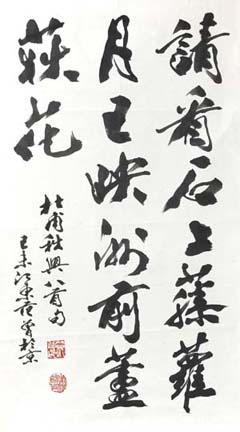 請看石上藤蘿
月已映洲前蘆
荻花
杜甫秋興八首句
己未江東范曾於京